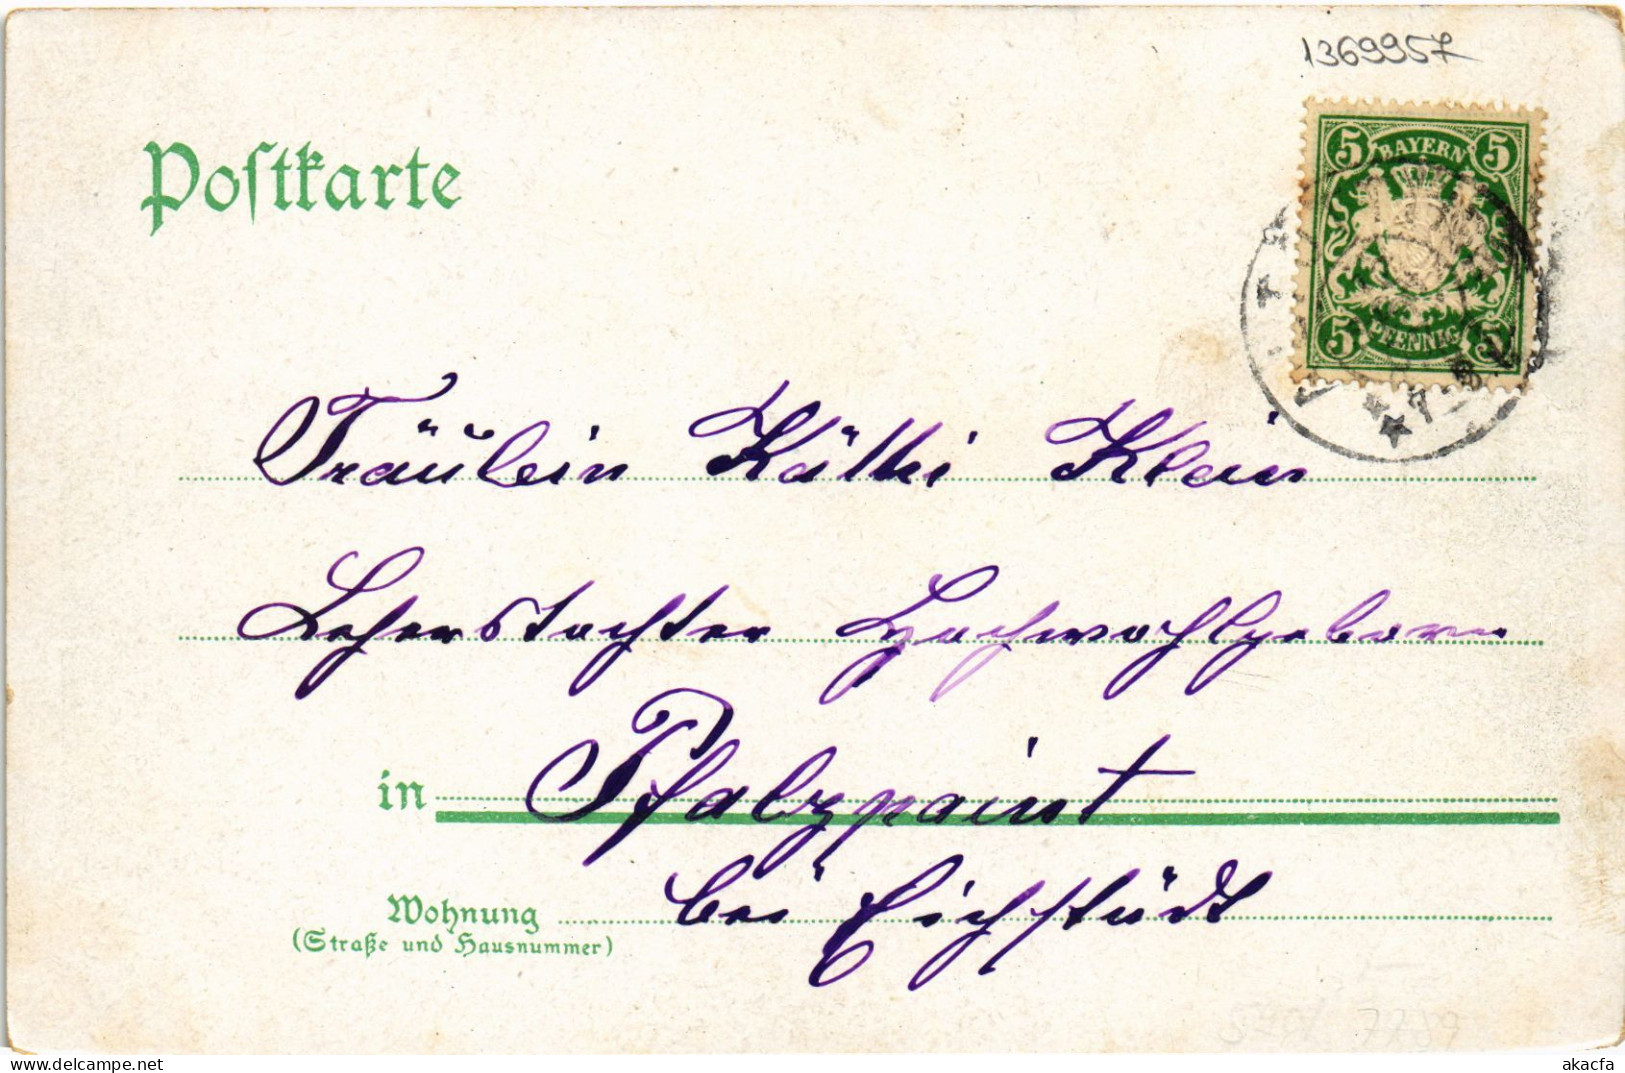 1369957
Postkarte
5 BAYERN 5
5 PFENNIG 5
7-8
Fräulein Käthi Klein
Lehrerstochter Hochwohlgeboren
in Pfalzpaint
Wohnung bei Eichstädt
(Straße und Hausnummer)
akacfa